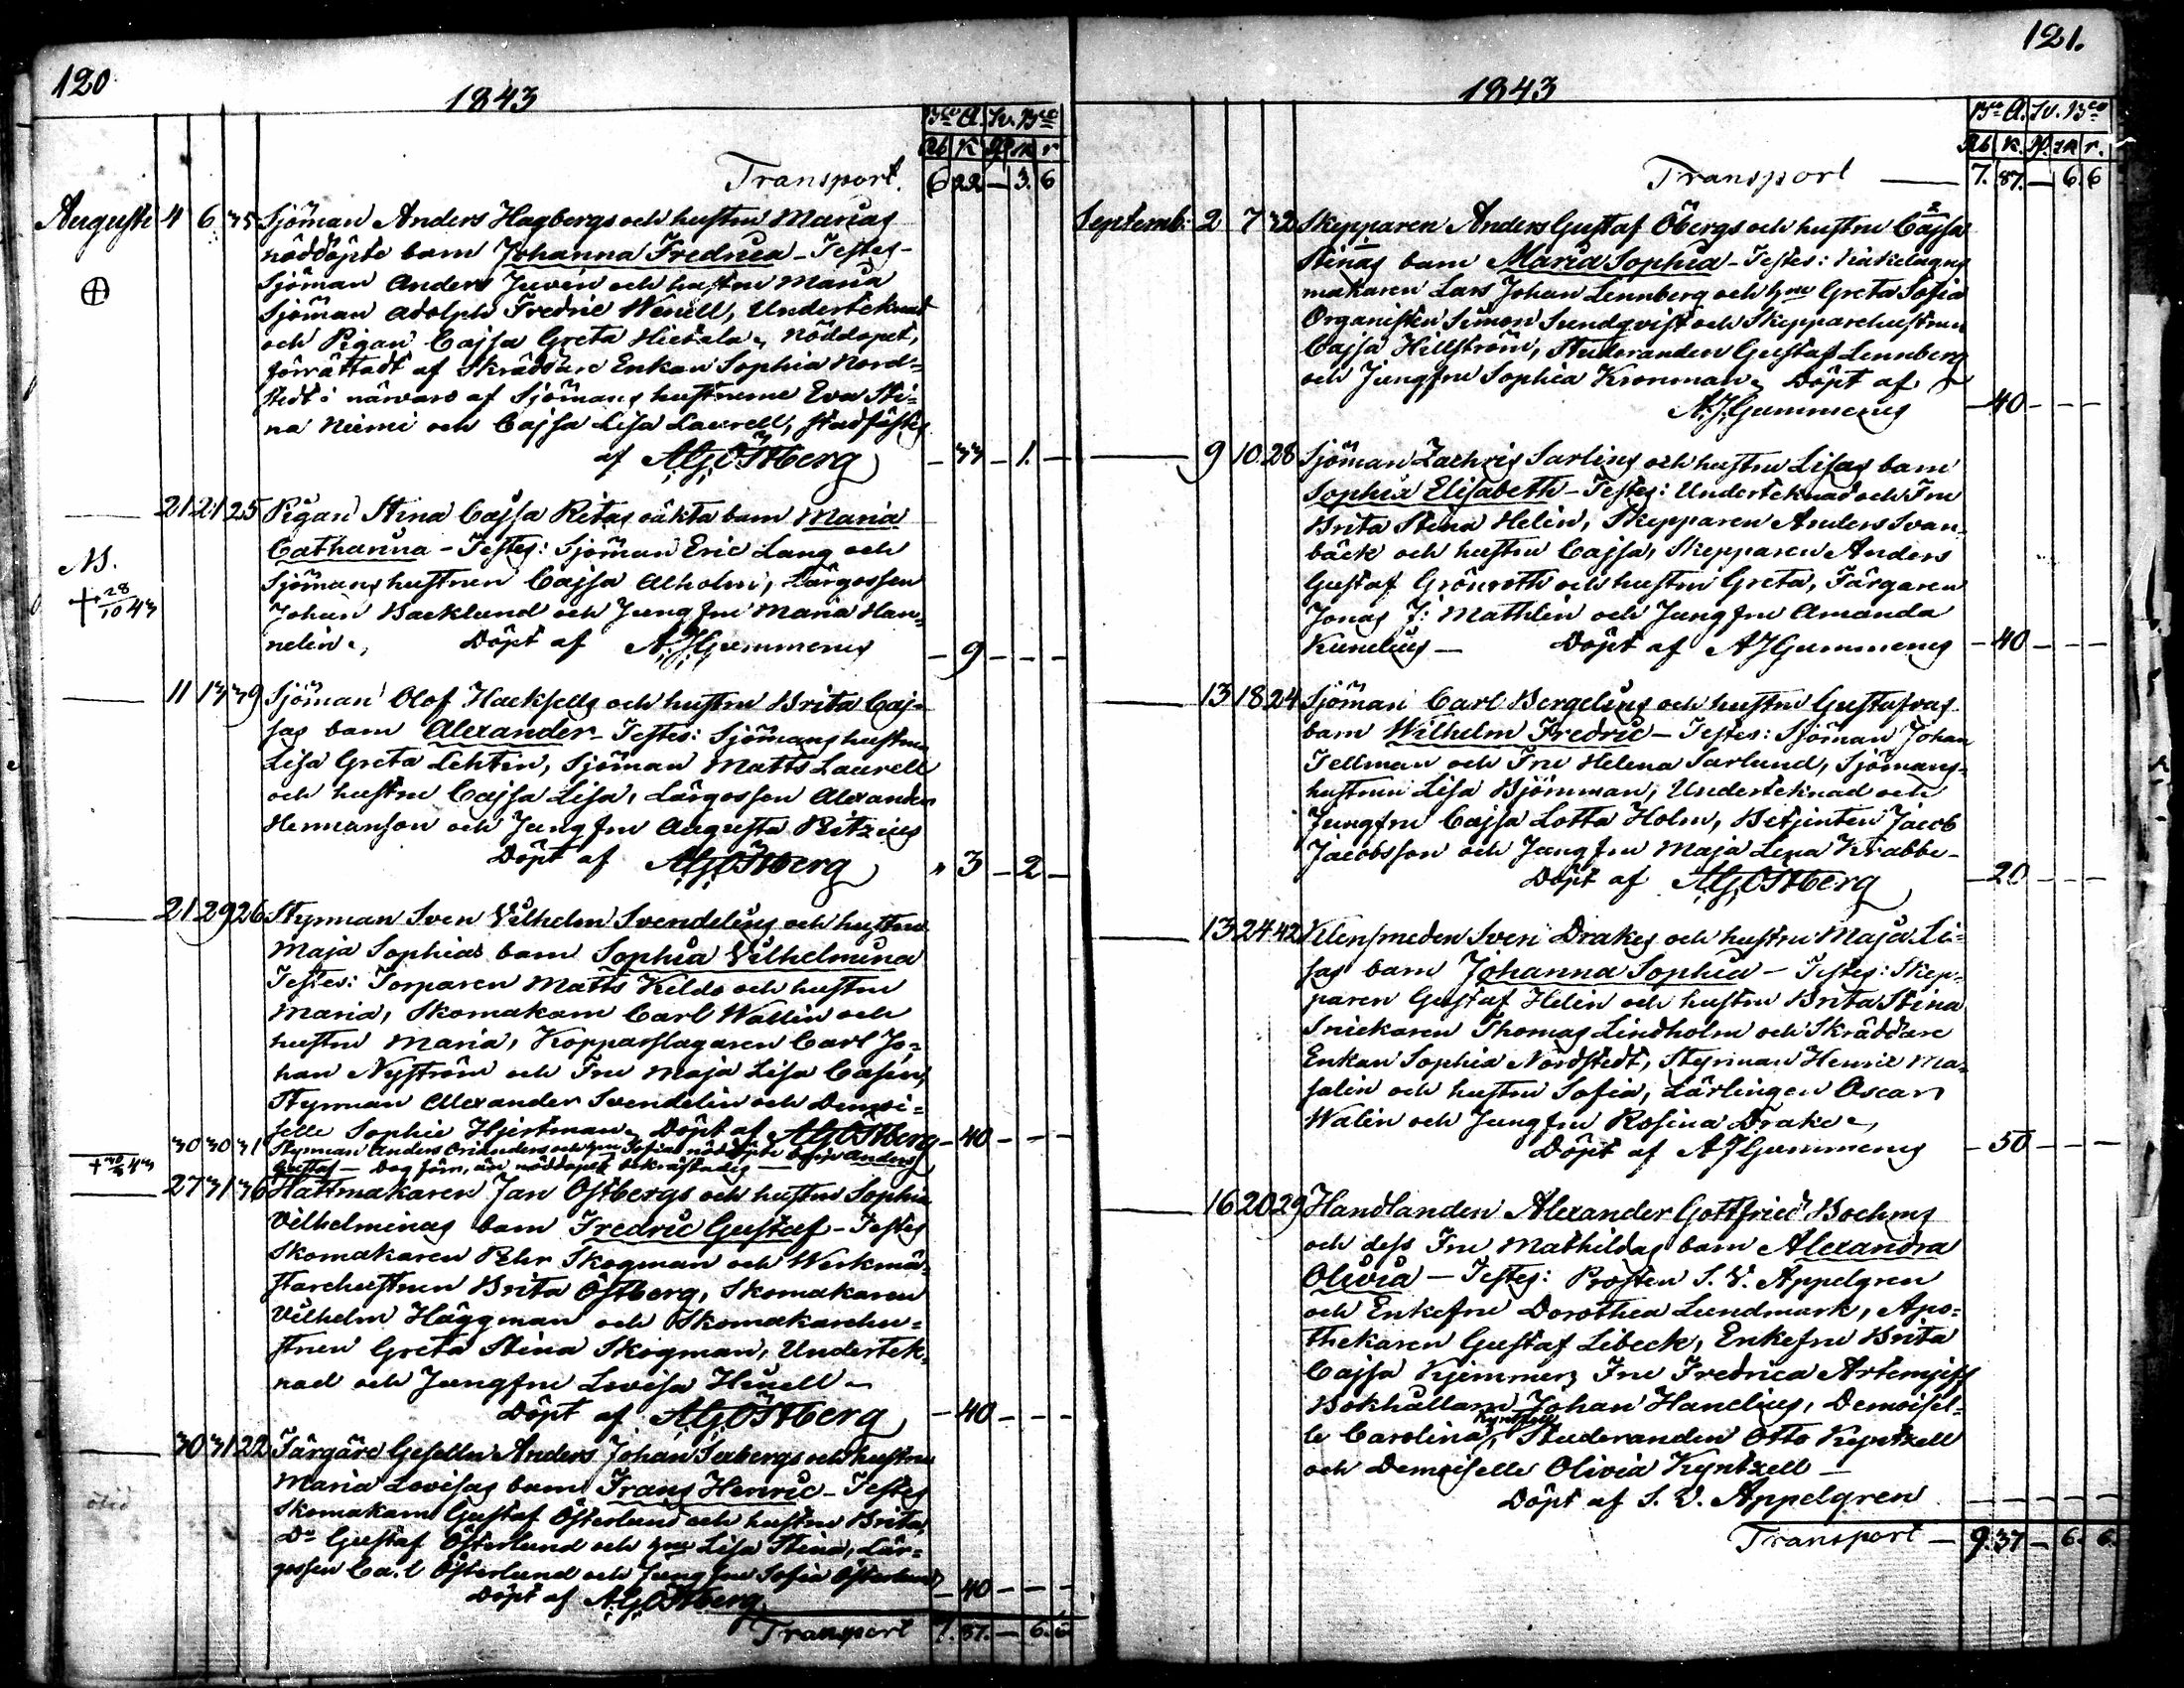 120
1843
Bco A. Sv. Bco
Rb K Rf sk r
Transport. 6 22 — 3. 6
Augusti 4 6 35 Sjöman Anders Hagbergs och hustru Marias
nöddöpte barn Johanna Fredrica - Testes -
Sjöman Anders Juvin och hustru Maria
Sjöman Adolph Fredric Wenell, Underteknad
och Pigan Cajsa Greta Hietala, Nöddopet,
förrättadt af Skräddare Enkan Sophia Nord=
stedt i närvaro af Sjömans hustruerne Eva Sti=
na Niemi och Cajsa Lisa Laurell, stadfästes
af AGÖstberg — 33 — 1. —
21 21 25 Pigan Stina Cajsa Ritas oäkta barn Maria
Catharina - Testes: Sjöman Eric Lang och
NB.
Sjömans hustrun Cajsa Alholm, Lärgossen
+ 28/10 43
Johan Backlund och Jungfru Maria Han=
nelin, Döpt af AJGummerus — 9 — — —
11 13 39 Sjöman Olof Hacksells och hustru Brita Caj=
sas barn Alexander - Testes: Sjömans hustrun
Lisa Greta Lehtin, Sjöman Matts Laurell
och hustru Cajsa Lisa, Lärgossen Alexander
Hermanson och Jungfru Augusta Ritzius
Döpt af AGÖstberg " 3 — 2 —
21 29 26 Styrman Sven Vilhelm Svendelins och hustru
Maja Sophias barn Sophia Vilhelmina
Testes: Torparen Matts Keldo och hustru
Maria, Skomakarn Carl Wallin och
hustru Maria, Kopparslagaren Carl Jo=
han Nyström och Fru Maja Lisa Casén,
Styrman Alexander Svendelin och Demoi=
selle Sophie Hjertman, Döpt af AGÖstberg — 40 — — —
30 30 31 Styrman Anders Orianders och hru Sofias nöddöpte barn Anders
Gustaf — Dog förr, än nöddopet bekräftades —
27 31 36 Hattmakaren Jan Östbergs och hustru Sophia
Vilhelminas barn Fredric Gustaf - Testes
Skomakaren Pehr Skogman och Werkmä=
starehustrun Brita Östberg, Skomakaren
Vilhelm Häggman och Skomakarehu=
strun Greta Stina Skogman, Undertek=
nad och Jungfru Lovisa Hinell —
Döpt af AGÖstberg — 40 — — —
30 31 22 Färgare Gesellen Anders Johan Seabergs och hustru
Maria Lovisas barn Frans Henric - Testes
Skomakarn Gustaf Österlund och hustru Brita,
Do Gustaf Österlund och hru Lisa Stina, Lär=
gossen Carl Österlund och Jungfru Sofia Österlund
Döpt af AGÖstberg — 40 — — —
Transport 7. 87. — 6. 6
121.
1843
Bco A. Sv. Bco
Rb K. Rf. sk r.
Transport — 7. 87. — 6. 6
Septemb. 2 7 32 Skepparen Anders Gustaf Öbergs och hustru Cajsa
Stinas barn Maria Sophia - Testes:
makaren Lars Johan Lennberg och hru Greta Sofia
Organisten Simon Sundqvist och Skepparehustrun
Cajsa Hellström, Studeranden Gustaf Lennberg
och Jungfru Sophia Kronman, Döpt af
AJGummerus — 40 — — —
9 10 28 Sjöman Zachris Sarlins och hustru Lisas barn
Sophia Elisabeth - Testes: Underteknad och Fru
Brita Stina Helin, Skepparen Anders Svan=
bäck och hustru Cajsa, Skepparen Anders
Gustaf Grönroth och hustru Greta, Färgaren
Jonas J: Mathlin och Jungfru Amanda
Kunelius — Döpt af AJGummerus — 40 — — —
13 18 24 Sjöman Carl Bergelins och hustru Gustafvas
barn Wilhelm Fredric — Testes: Sjöman Johan
Tellman och Fru Helena Sarlund, Sjömans=
hustrun Lisa Björnman, Undertecknad och
Jungfru Cajsa Lotta Holm, Betjenten Jacob
Jacobsson och Jungfru Maja Lena Krabbe —
Döpt af AGÖstberg — 20 — — —
13 24 42 Klensmeden Sven Drakes och hustru Maja Li=
sas barn Johanna Sophia — Testes: Skep=
paren Gustaf Helin och hustru Brita Stina
Snickaren Thomas Lindholm och Skräddare
Enkan Sophia Nordstedt, Styrman Henric Ma=
salin och hustru Sofia, Lärlingen Oscar
Walin och Jungfru Rosina Drake,
Döpt af AJGummerus — 50 — — —
16 20 29 Handlanden Alexander Gottfried Boehms
och dess Fru Mathildas barn Alexandra
Olivia — Testes: Prosten S. V. Appelgren
och Enkefru Dorothea Lundmark, Apo=
thekaren Gustaf Libeck, Enkefru Brita
Cajsa Kjemmer, Fru Fredrica Artemjeff
Bokhållarn Johan Hanelius, Demoisel=
le Carolina Kyntzell, Studeranden Otto Kyntzell
och Demoiselle Olivia Kyntzell —
Döpt af S. V. Appelgren — — — — —
Transport — 9. 37 — 6. 6.